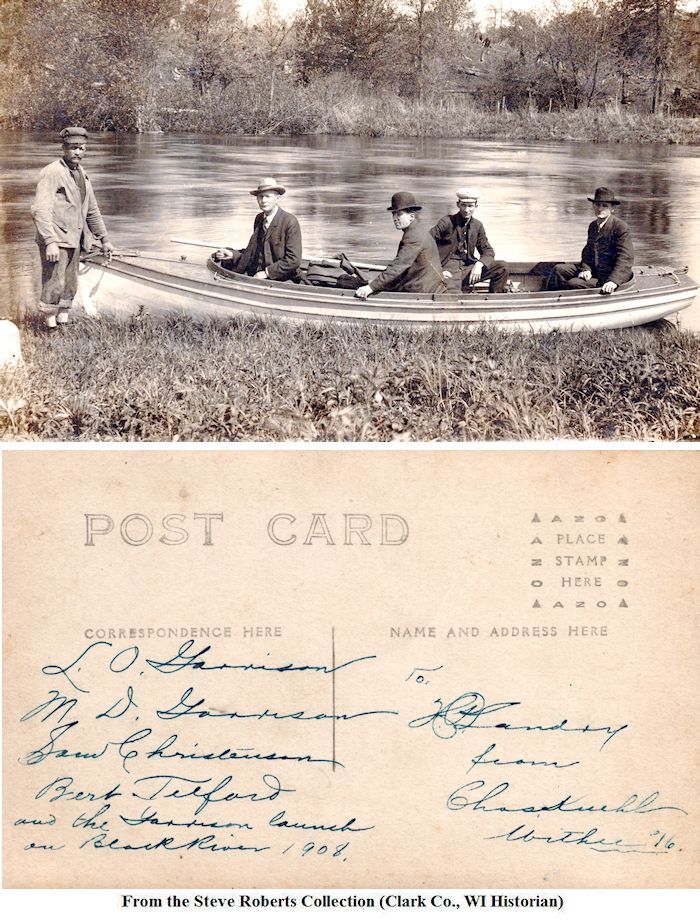 POST CARD
AZO
PLACE
STAMP
HERE
AZO
CORRESPONDENCE HERE
NAME AND ADDRESS HERE
L. O. Garrison
M. D. Garrison
Christenson
Bert Telford
and the Garrison launch
on Black River 1908.
To.
Landry
from
Chas. Kuehl
Withee '16.
From the Steve Roberts Collection (Clark Co., WI Historian)